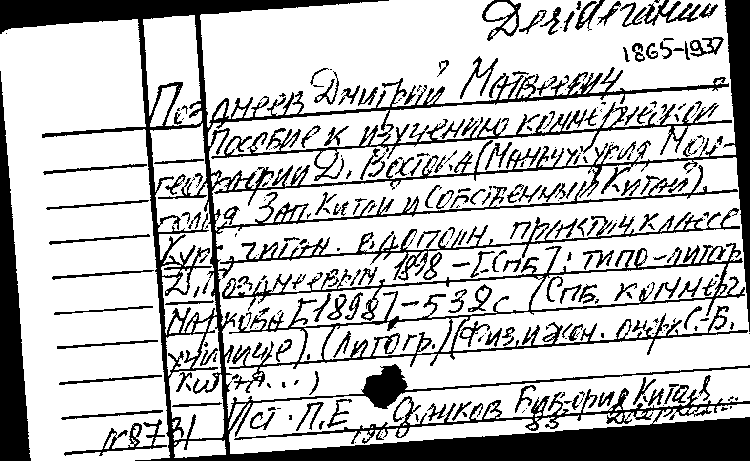 Desiderata
1865-1937
Позднеев Дмитрий Матвеевич,
Пособие к изучению коммерческой
географии Д. Востока (Маньчжурия, Мон-
голия, Зап. Китай и Собственный Китай).
Курс, читан. в дополн. практич. классе
Д. Позднеевым, 1898.-[СПБ]: типо-литогр.
Маркова [1898],-532 с. (СПБ. коммерч.
училище). (Литогр.) (Физ. и экон. очерк С.-В.
Китая...)
Ист. П.Е. Скачков Библиография Китая
1960
N 8731